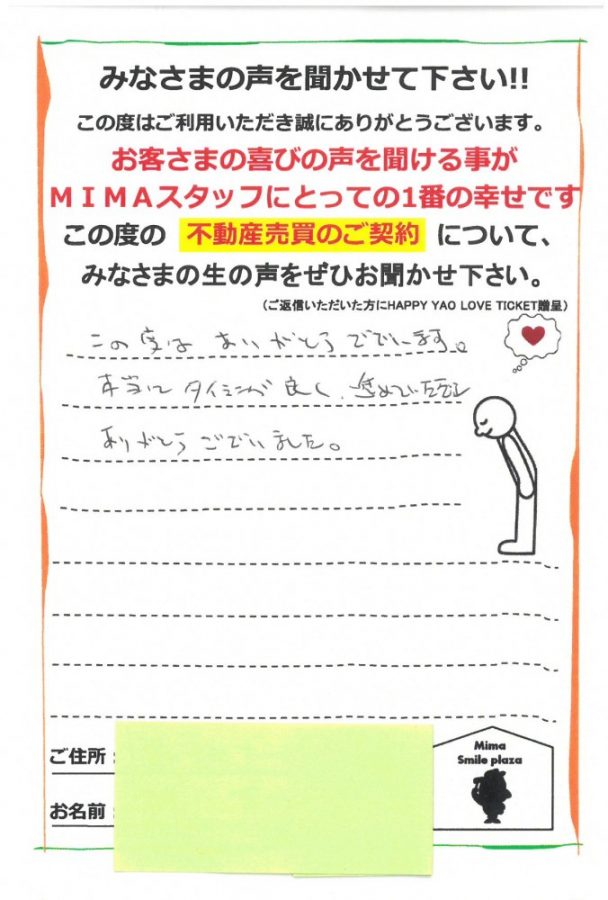 みなさまの声を聞かせて下さい!!
この度はご利用いただき誠にありがとうございます。
お客さまの喜びの声を聞ける事が
MIMAスタッフにとっての1番の幸せです
この度の 不動産売買のご契約 について、
みなさまの生の声をぜひお聞かせ下さい。
（ご返信いただいた方にHAPPY YAO LOVE TICKET贈呈）
この度は ありがとうございます。
本当に タイミングが 良く、進めていただき
ありがとうございました。
ご住所：
お名前：
Mima
Smile plaza